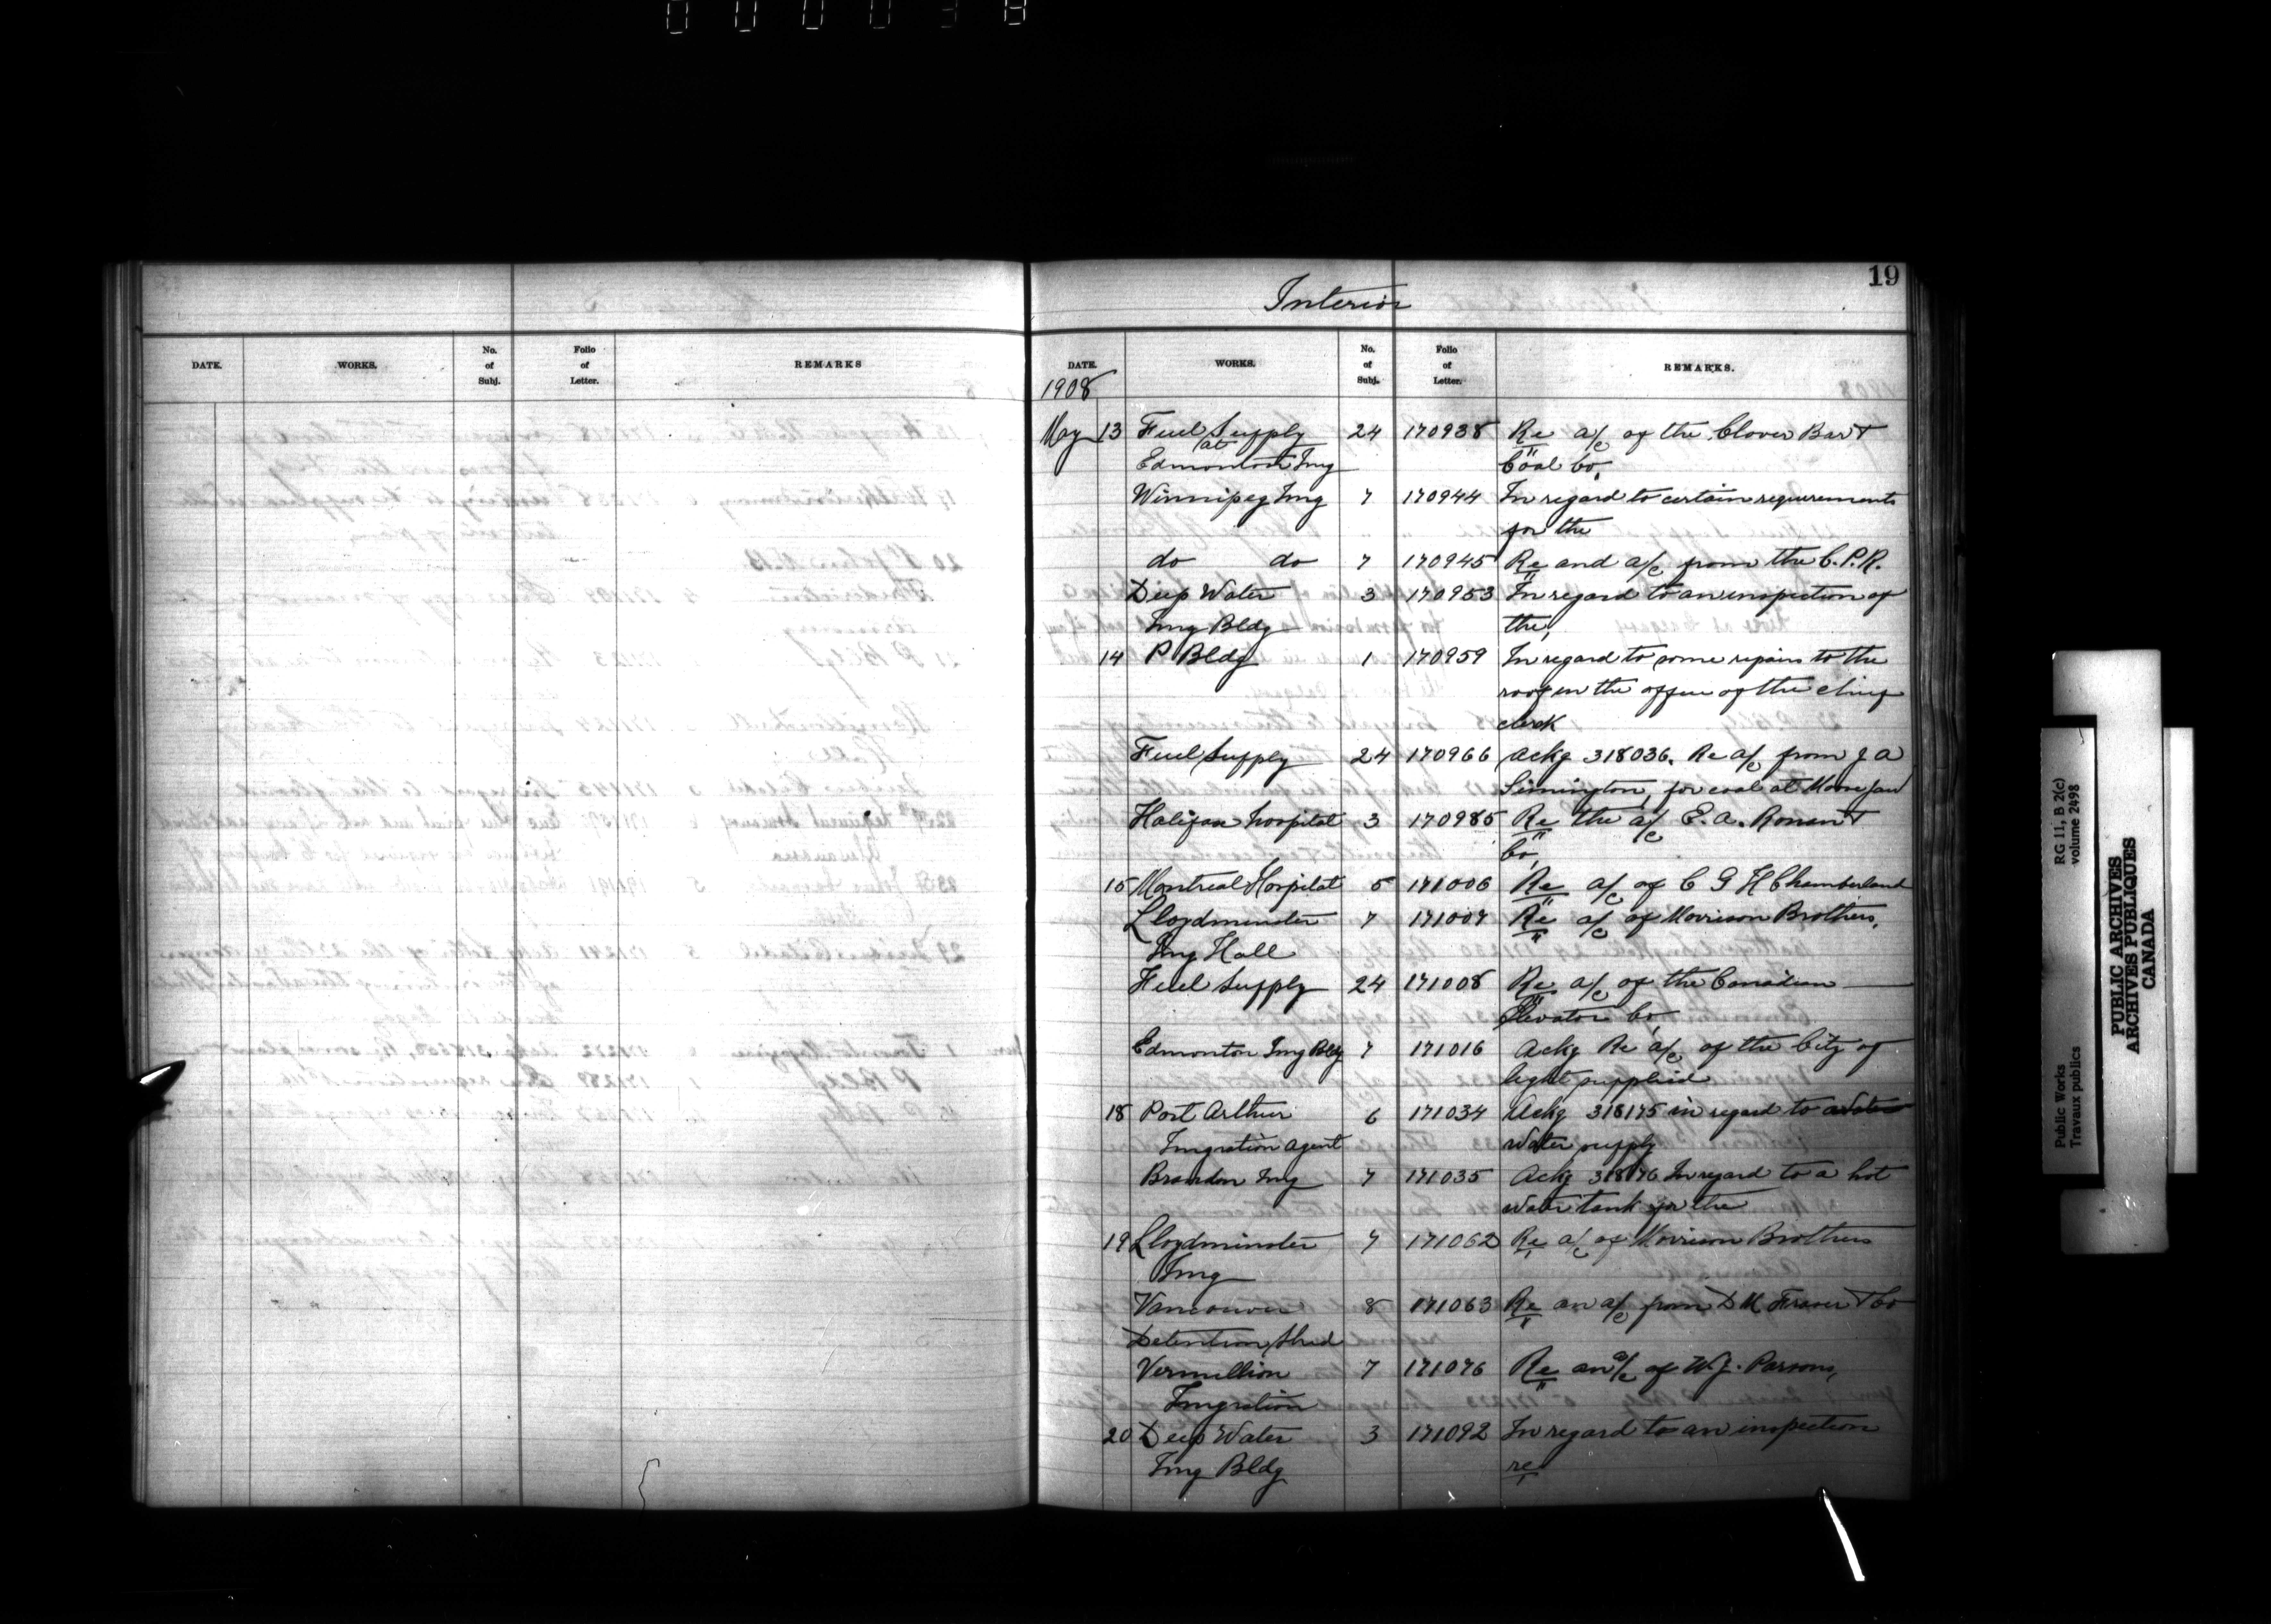 19
Interior
DATE. WORKS. No. of Subj. Folio of Letter. REMARKS
DATE. WORKS. No. of Subj. Folio of Letter. REMARKS.
1908
May 13 Fuel Supply 24 170938 Re a/c of the Clover Bar
at
Edmonton Img Coal Co.
Winnipeg Img 7 170944 In regard to certain requirements
for the
do do 7 170945 Re and a/c from the C.P.R.
Deep Water 3 170953 In regard to an inspection of
Img Bldg the,
14 P Bldg 1 170959 In regard to some repairs to the
roof in the office of the
clerk
Fuel Supply 24 170966 Ackg 318036. Re a/c from J A
Simington, for coal at Moose Jaw
Halifax hospital 3 170985 Re the a/c E. A. &
Co,
15 Montreal Hospital 5 171006 Re a/c of C G H Chamberland
Lloydminster 7 171007 Re a/c of Morrison Brothers,
Img Hall
Fuel Supply 24 171008 Re a/c of the Canadian
Elevator Co,
Edmonton Img Bldg 7 171016 Ackg Re a/c of the City of
light supplied
18 Port Arthur 6 171034 Ackg 318175 in regard to
Imgration Agent Water supply
Brandon Img 7 171035 Ackg 318176 In regard to a hot
water tank for the
19 Lloydminster 7 171062 Re a/c of Morrison Brothers
Img
Vancouver 8 171063 Re an a/c from D M Fraser & Co
Detention Shed
Vermillion 7 171076 Re an a/c of W. J. Parsons,
Imgration
20 Deep Water 3 171092 In regard to an inspection
Img Bldg re
Public Works RG 11, B 2(c)
Travaux publics volume 2498
PUBLIC ARCHIVES
ARCHIVES PUBLIQUES
CANADA